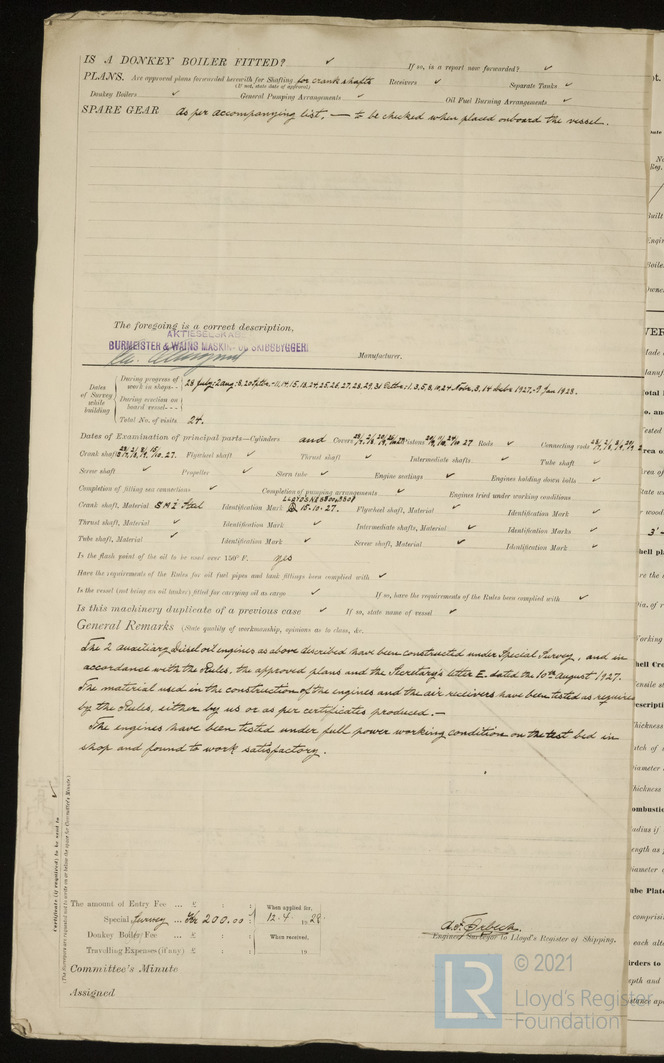 IS A DONKEY BOILER FITTED? ✓ If so, is a report now forwarded? ✓
PLANS. Are approved plans forwarded herewith for Shafting for crank shafts Receivers ✓ Separate Tanks ✓
(If not, state date of approval)
Donkey Boilers ✓ General Pumping Arrangements ✓ Oil Fuel Burning Arrangements ✓
SPARE GEAR As per accompanying list, — to be checked when placed onboard the vessel.
The foregoing is a correct description,
AKTIESELSKABET
BURMEISTER & WAINS MASKIN- OG SKIBSBYGGERI
Manufacturer.
Dates of Survey while building
During progress of work in shops - - 28 July: 2 Aug: 8, 20 Sptbr: 11, 14, 15, 18, 24, 25, 26, 27, 28, 29, 31 Octbr: 1, 3, 5, 8, 10, 24 Novbr, 3, 14 Decbr 1927, 9 Jan 1928.
During erection on board vessel - - -
Total No. of visits 24.
Dates of Examination of principal parts—Cylinders and Covers Pistons Rods ✓ Connecting rods
Crank shaft Flywheel shaft ✓ Thrust shaft ✓ Intermediate shafts ✓ Tube shaft ✓
Screw shaft ✓ Propeller ✓ Stern tube ✓ Engine seatings ✓ Engines holding down bolts ✓
Completion of fitting sea connections ✓ Completion of pumping arrangements ✓ Engines tried under working conditions
Crank shaft, Material S M I Steel Identification Mark 15-10-27. Flywheel shaft, Material ✓ Identification Mark ✓
Thrust shaft, Material ✓ Identification Mark ✓ Intermediate shafts, Material ✓ Identification Marks ✓
Tube shaft, Material ✓ Identification Mark ✓ Screw shaft, Material ✓ Identification Mark ✓
Is the flash point of the oil to be used over 150° F. yes
Have the requirements of the Rules for oil fuel pipes and tank fittings been complied with ✓
Is the vessel (not being an oil tanker) fitted for carrying oil as cargo ✓ If so, have the requirements of the Rules been complied with ✓
Is this machinery duplicate of a previous case ✓ If so, state name of vessel ✓
General Remarks (State quality of workmanship, opinions as to class, &c.
The 2 auxiliary Diesel oil engines as above described have been constructed under Special Survey, and in
accordance with the Rules, the approved plans and the Secretary's letter E. dated the 10th August 1927.
The material used in the construction of the engines and the air receivers have been tested as required
by the Rules, either by us or as per certificates produced.—
The engines have been tested under full power working condition on the test bed in
shop and found to work satisfactory.
Certificate (if required) to be sent to
(The Surveyors are requested not to write on or below the space for Committee's Minute.)
The amount of Entry Fee ... £ : : When applied for,
Special Survey ... Kr 200.00 : 12.4. 1928.
Donkey Boiler Fee ... £ : : When received,
Travelling Expenses (if any) £ : : 19
Engineer Surveyor to Lloyd's Register of Shipping.
Committee's Minute
Assigned
LR
© 2021
Lloyd's Register
Foundation